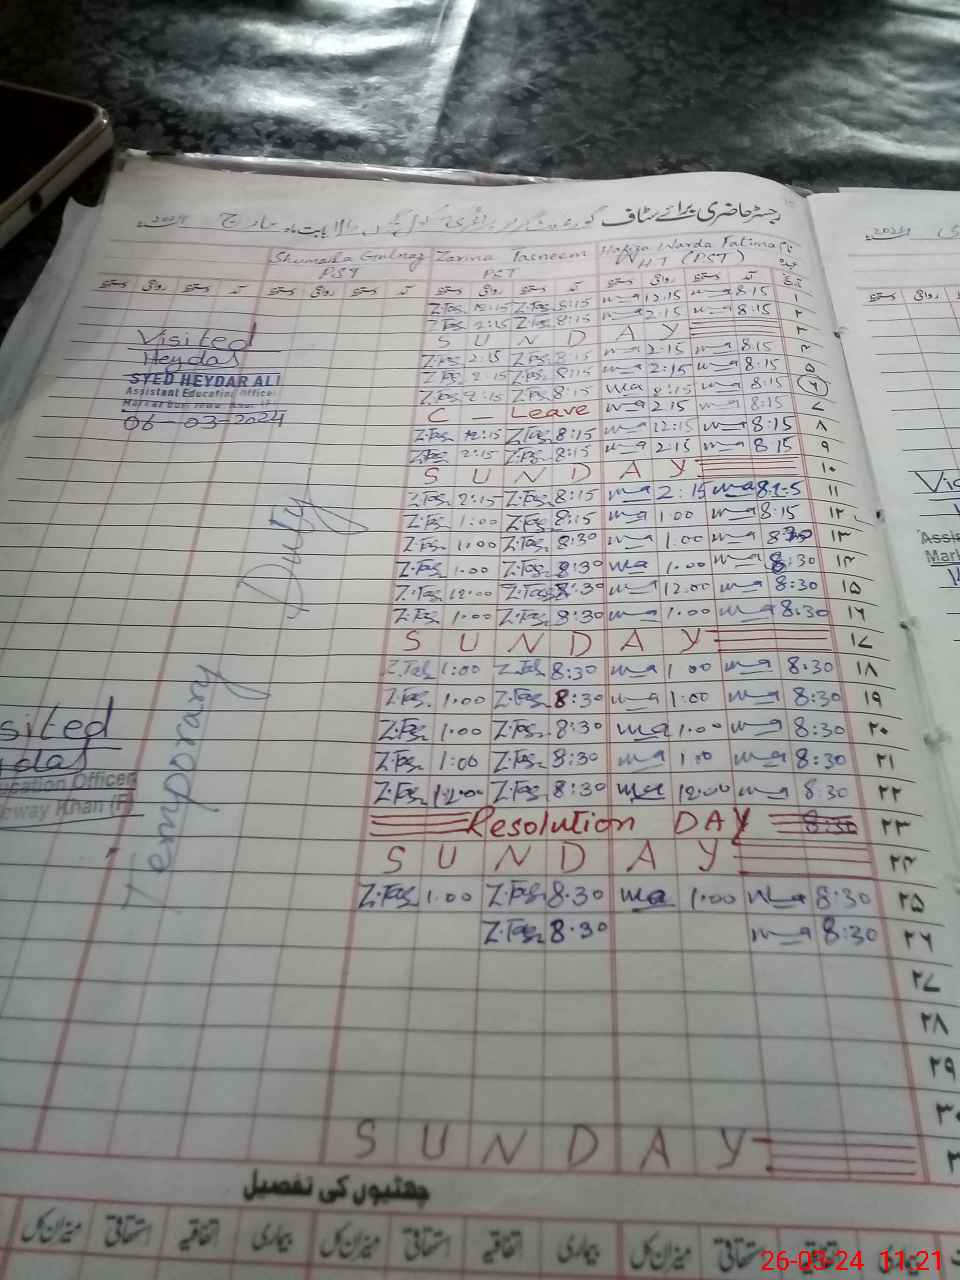 رجسٹر حاضری برائے سٹاف گورنمنٹ گرلز پرائمری سکول بابت ماہ مارچ 2024ء
Shumaila Gulnaz Zarina Tasneem Hafiza Warda Fatima نام
PST PST HT (PST) عہدہ
دستخط روانگی دستخط آمد دستخط روانگی دستخط آمد دستخط روانگی دستخط آمد تاریخ
Z.Tas 12:15 Z.Tas 8:15 12:15 8:15 ۱
Z.Tas 2:15 Z.Tas 8:15 2:15 8:15 ۲
S U N D A Y ۳
Z.Tas 2:15 Z.Tas 8:15 2:15 8:15 ۴
Z.Tas 2:15 Z.Tas 8:15 2:15 8:15 ۵
Z.Tas 2:15 Z.Tas 8:15 8:15 8:15 ۶
C — Leave 2:15 8:15 ۷
Z.Tas 12:15 Z.Tas 8:15 12:15 8:15 ۸
Z.Tas 2:15 Z.Tas 8:15 2:15 8:15 ۹
S U N D A Y ۱۰
Z.Tas 2:15 Z.Tas 8:15 2:15 8:15 ۱۱
Z.Tas 1:00 Z.Tas 8:15 1:00 8:15 ۱۲
Z.Tas 1:00 Z.Tas 8:30 1:00 8:30 ۱۳
Z.Tas 1:00 Z.Tas 8:30 1:00 8:30 ۱۴
Z.Tas 12:00 Z.Tas 8:30 12:00 8:30 ۱۵
Z.Tas 1:00 Z.Tas 8:30 1:00 8:30 ۱۶
S U N D A Y ۱۷
Z.Tas 1:00 Z.Tas 8:30 1:00 8:30 ۱۸
Z.Tas 1:00 Z.Tas 8:30 1:00 8:30 ۱۹
Z.Tas 1:00 Z.Tas 8:30 1:00 8:30 ۲۰
Z.Tas 1:00 Z.Tas 8:30 1:00 8:30 ۲۱
Z.Tas 12:00 Z.Tas 8:30 12:00 8:30 ۲۲
Resolution DAY 8:30 ۲۳
S U N D A Y ۲۴
Z.Tas 1:00 Z.Tas 8:30 1:00 8:30 ۲۵
Z.Tas 8:30 8:30 ۲۶
۲۷
۲۸
۲۹
۳۰
S U N D A Y
Visited
Heydar
SYED HEYDAR ALI
Assistant Education Officer
06-03-2024
Temporary Duty
sited
ydar
ucation Officer
eway Khan (F)
چھٹیوں کی تفصیل
میزان کل استحقاقی اتفاقیہ بیماری میزان کل استحقاقی اتفاقیہ بیماری میزان کل استحقاقی اتفاقیہ بیماری
2024ء
Vis
Assis
Mark
26-03-24 11:21